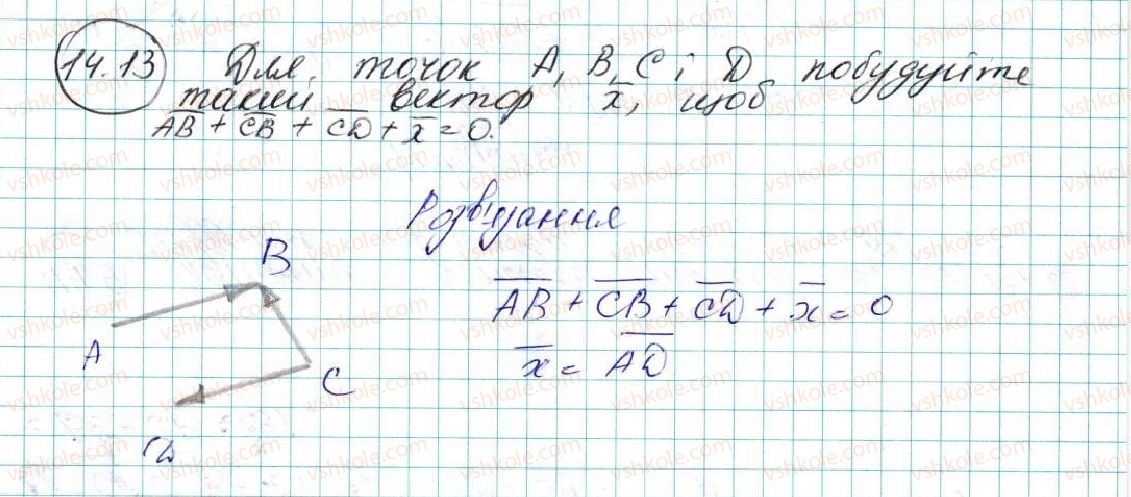 14.13 Для точок A, B, C і D побудуйте
такий вектор x̅, щоб
A̅B̅ + C̅B̅ + C̅D̅ + x̅ = 0.
Розв'язання
B
A̅B̅ + C̅B̅ + C̅D̅ + x̅ = 0
A
x̅ = A̅D̅
C
D